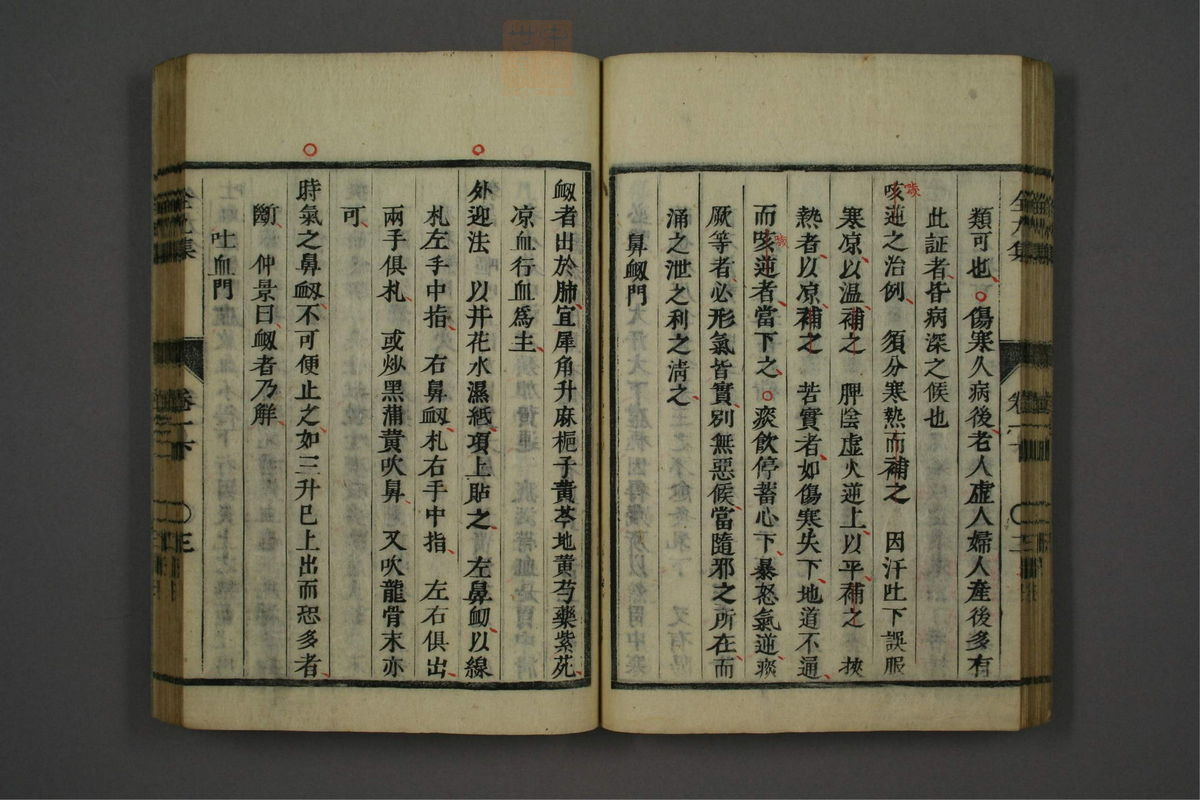 類可也○傷寒久病後老人虛人婦人產後多有
此証者皆病深之候也
咳逆之治例　須分寒熱而補之　因汗吐下誤服
寒凉以温補之　脾陰虛火逆上以平補之　挾
熱者以凉補之　若實者如傷寒失下地道不通
而咳逆者當下之○痰飲停蓄心下暴怒氣逆痰
厥等者必形氣皆實別無惡候當隨邪之所在而
涌之泄之利之淸之
鼻衂門
衂者出於肺宜犀角升麻梔子黄芩地黄芍藥紫苑
凉血行血爲主
外迎法　以井花水濕紙項上貼之　左鼻衂以線
札左手中指　右鼻衂札右手中指　左右俱出
兩手俱札　或炒黑蒲黄吹鼻　又吹龍骨末亦
可
時氣之鼻衂不可便止之如三升巳上出而恐多者
斷　仲景曰衂者乃解
吐血門
卷一下
三